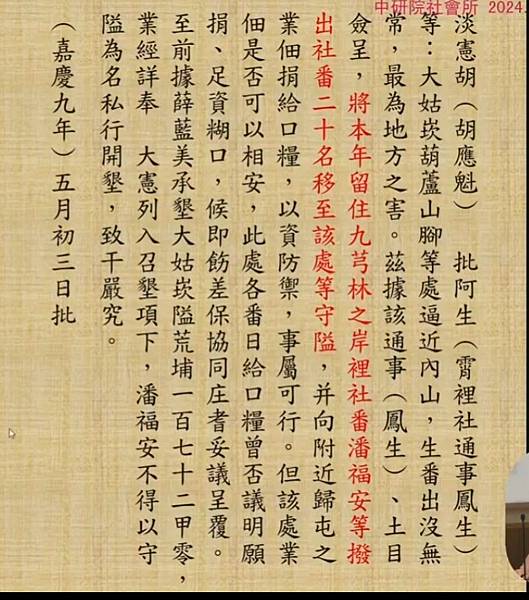 中研院社會所 2024.
淡憲胡（胡應魁）　批阿生（霄裡社通事鳳生）
等：大姑崁葫蘆山腳等處逼近內山，生番出沒無
常，最為地方之害。茲據該通事（鳳生）、土目
僉呈，將本年留住九芎林之岸裡社番潘福安等撥
出社番二十名移至該處等守隘，并向附近歸屯之
業佃捐給口糧，以資防禦，事屬可行。但該處業
佃是否可以相安，此處各番日給口糧曾否議明願
捐、足資糊口，候即飭差保協同庄耆妥議呈覆。
至前據薛藍美承墾大姑崁隘荒埔一百七十二甲零，
業經詳奉　大憲列入召墾項下，潘福安不得以守
隘為名私行開墾，致干嚴究。
（嘉慶九年）五月初三日批